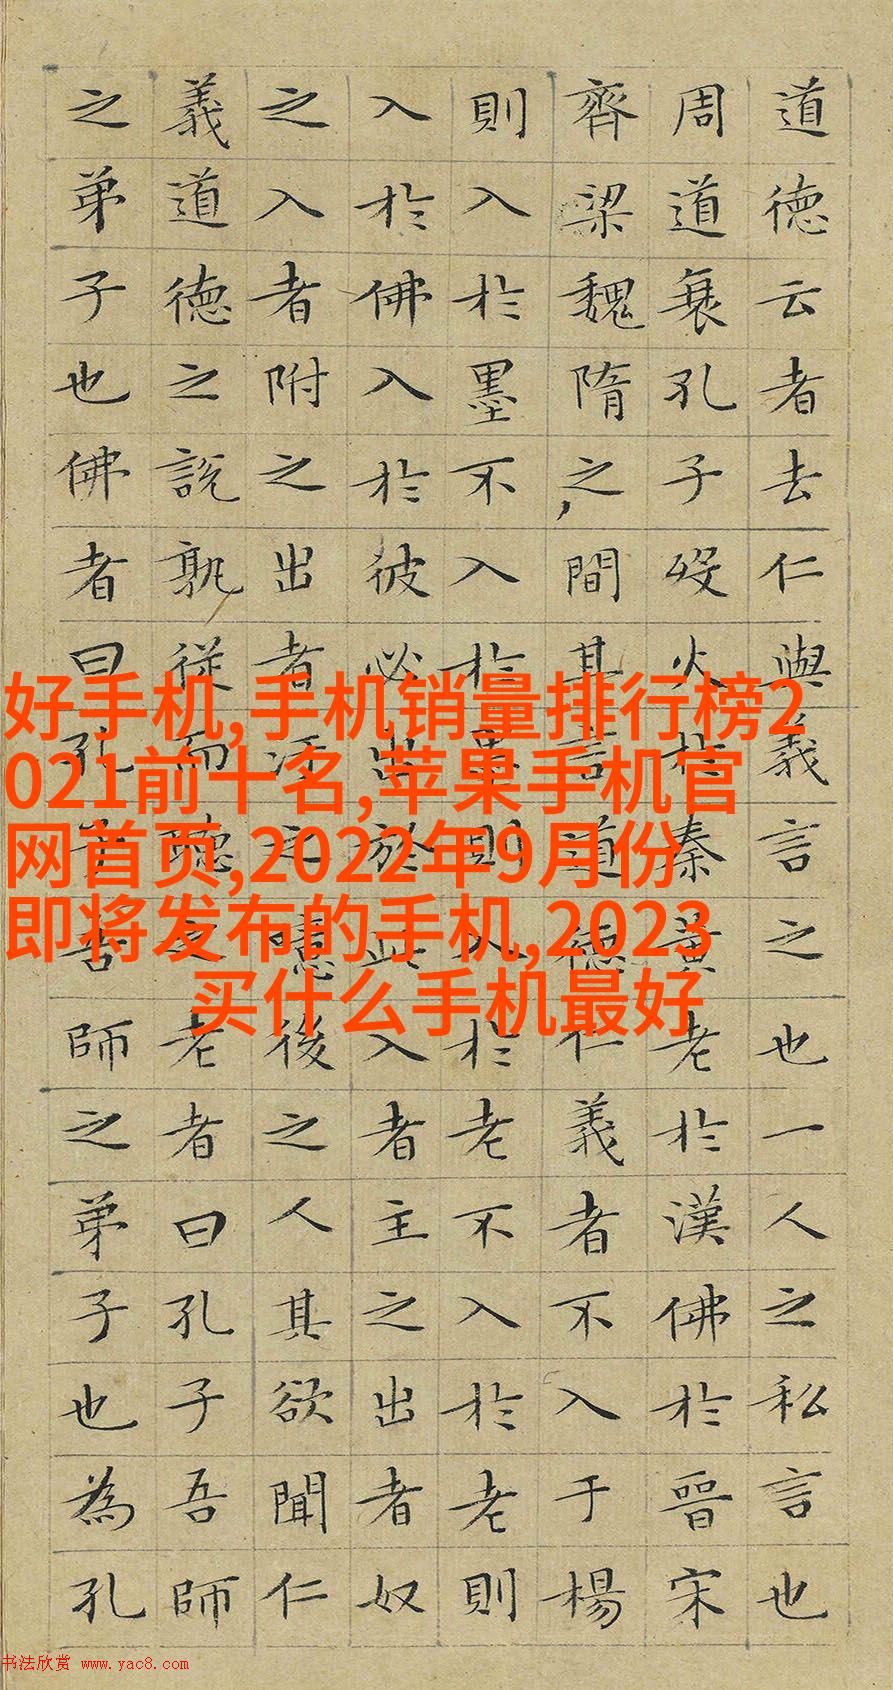 道德云者去仁與義言之也一人之私言也
周道衰孔子歿火於秦黃老於漢佛於晉宋
齊梁魏隋之間其言道德仁義者不入于楊
則入於墨不入於墨則入於老不入於老則
入於佛入於彼必出於此入者主之出者奴
之入者附之出者汙之噫後之人其欲聞仁
義道德之說孰從而聽之老者曰孔子吾師
之弟子也佛者曰孔子吾師之弟子也為孔
好手机,手机销量排行榜2
021前十名,苹果手机官
网首页,2022年9月份
即将发布的手机,2023
买什么手机最好
书法欣赏 www.yac8.com